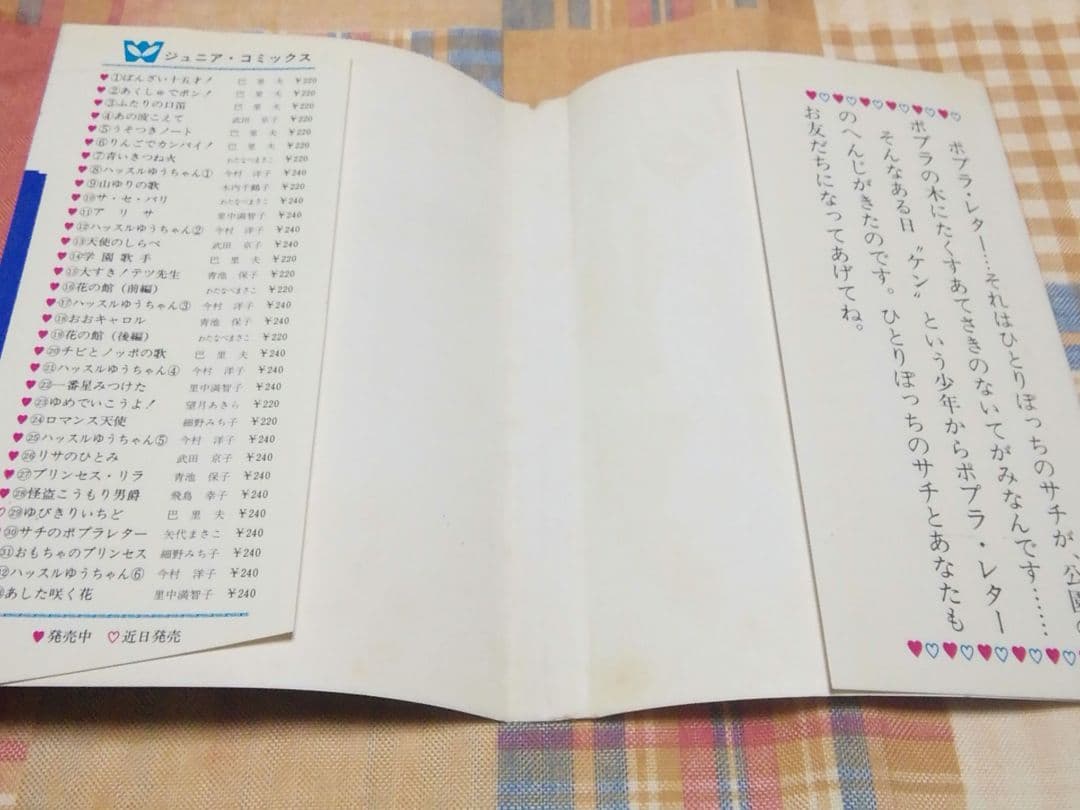 ジュニア・コミックス
♥①ばんざい十五才! 巴里夫 ¥220
♥②あくしゅでポン! 巴里夫 ¥220
♥③ふたりの口笛 巴里夫 ¥220
♥④あの波こえて 武田京子 ¥240
♥⑤うそつきノート 巴里夫 ¥220
♥⑥りんごでカンパイ! 巴里夫 ¥220
♥⑦青いきつね火 わたなべまさこ ¥220
♥⑧ハッスルゆうちゃん① 今村洋子 ¥240
♥⑨山ゆりの歌 木内千鶴子 ¥220
♥⑩サ・セ・パリ わたなべまさこ ¥240
♥⑪アリサ 里中満智子 ¥240
♥⑫ハッスルゆうちゃん② 今村洋子 ¥240
♥⑬天使のしらべ 武田京子 ¥240
♥⑭学園歌手 巴里夫 ¥240
♥⑮大すき!テツ先生 青池保子 ¥220
♥⑯花の館(前編) わたなべまさこ ¥220
♥⑰ハッスルゆうちゃん③ 今村洋子 ¥240
♥⑱おおキャロル 青池保子 ¥240
♥⑲花の館(後編) わたなべまさこ ¥220
♥⑳チビとノッポの歌 巴里夫 ¥240
♥㉑ハッスルゆうちゃん④ 今村洋子 ¥240
♥㉒一番星みつけた 里中満智子 ¥240
♥㉓ゆめでいこうよ! 望月あきら ¥220
♥㉔ロマンス天使 細野みち子 ¥220
♥㉕ハッスルゆうちゃん⑤ 今村洋子 ¥240
♥㉖リサのひとみ 武田京子 ¥240
♥㉗プリンセス・リラ 青池保子 ¥240
♥㉘怪盗こうもり男爵 飛鳥幸子 ¥240
♡㉙ゆびきりいちど 巴里夫 ¥240
㉚サチのポプラレター 矢代まさこ ¥240
㉛おもちゃのプリンセス 細野みち子 ¥240
ハッスルゆうちゃん⑥ 今村洋子 ¥240
あした咲く花 里中満智子 ¥240
♥発売中 ♡近日発売
ポプラ・レター…それはひとりぼっちのサチが、公園の
ポプラの木にたくすあてさきのないてがみなんです……
そんなある日〝ケン〟という少年からポプラ・レター
のへんじがきたのです。ひとりぼっちのサチとあなたも
お友だちになってあげてね。